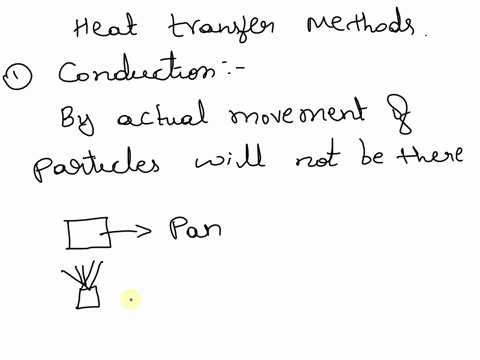 Heat transfer Methods.
① Conduction:-
By actual movement of
particles will not be there
Pan